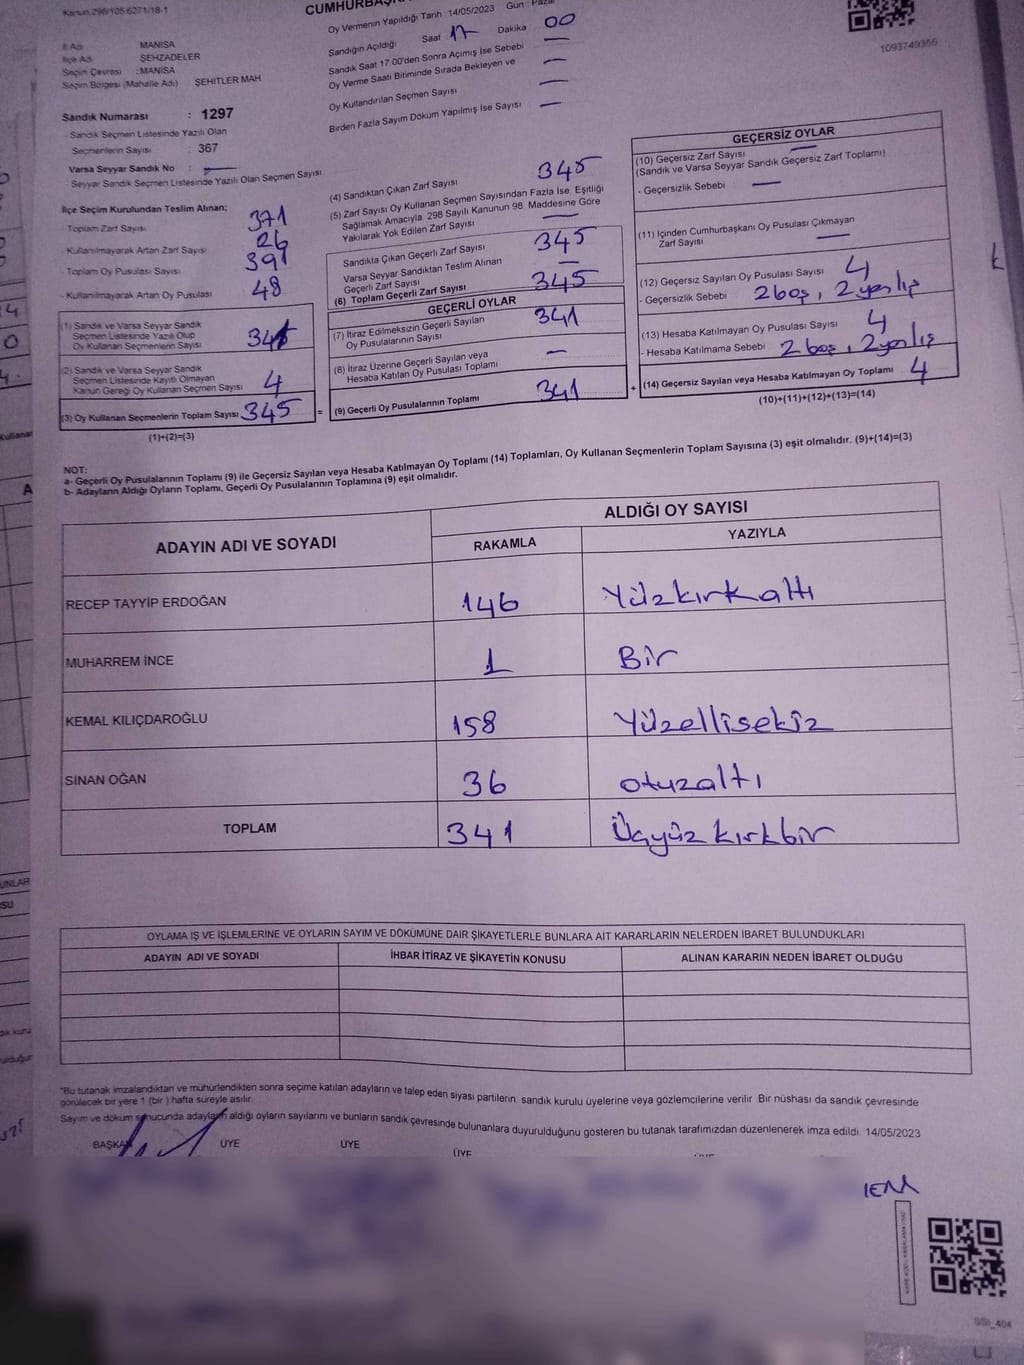 Kanun 298/105 6271/18-1
Oy Vermenin Yapıldığı Tarih : 14/05/2023 Gün : Pazar
İl Adı MANİSA
İlçe Adı ŞEHZADELER
Seçim Çevresi : MANİSA
Seçim Bölgesi (Mahalle Adı) ŞEHİTLER MAH.
Sandık Numarası : 1297
- Sandık Seçmen Listesinde Yazılı Olan
Seçmenlerin Sayısı : 367
Varsa Seyyar Sandık No : —
Seyyar Sandık Seçmen Listesinde Yazılı Olan Seçmen Sayısı
Sandığın Açıldığı Saat 17 Dakika 00
Sandık Saat 17:00'den Sonra Açımış İse Sebebi —
Oy Verme Saati Bitiminde Sırada Bekleyen ve
Oy Kullandırılan Seçmen Sayısı —
Birden Fazla Sayım Döküm Yapılmış İse Sayısı —
1093749355
İlçe Seçim Kurulundan Teslim Alınan;
- Toplam Zarf Sayısı 371
- Kullanılmayarak Artan Zarf Sayısı 26
- Toplam Oy Pusulası Sayısı 391
- Kullanılmayarak Artan Oy Pusulası 48
(1) Sandık ve Varsa Seyyar Sandık
Seçmen Listesinde Yazılı Olup
Oy Kullanan Seçmenlerin Sayısı
(2) Sandık ve Varsa Seyyar Sandık
Seçmen Listesinde Kayıtlı Olmayan
Kanun Gereği Oy Kullanan Seçmen Sayısı 4
(3) Oy Kullanan Seçmenlerin Toplam Sayısı 345
(1)+(2)=(3)
(4) Sandıktan Çıkan Zarf Sayısı 345
(5) Zarf Sayısı Oy Kullanan Seçmen Sayısından Fazla İse, Eşitliği
Sağlamak Amacıyla, 298 Sayılı Kanunun 98. Maddesine Göre
Yakılarak Yok Edilen Zarf Sayısı —
Sandıkta Çıkan Geçerli Zarf Sayısı 345
Varsa Seyyar Sandıktan Teslim Alınan
Geçerli Zarf Sayısı —
(6) Toplam Geçerli Zarf Sayısı 345
GEÇERLİ OYLAR
(7) İtiraz Edilmeksizin Geçerli Sayılan
Oy Pusulalarının Sayısı 341
(8) İtiraz Üzerine Geçerli Sayılan veya
Hesaba Katılan Oy Pusulası Toplamı —
= (9) Geçerli Oy Pusulalarının Toplamı 341 +
GEÇERSİZ OYLAR
(10) Geçersiz Zarf Sayısı —
(Sandık ve Varsa Seyyar Sandık Geçersiz Zarf Toplamı)
- Geçersizlik Sebebi —
(11) İçinden Cumhurbaşkanı Oy Pusulası Çıkmayan
Zarf Sayısı —
(12) Geçersiz Sayılan Oy Pusulası Sayısı 4
- Geçersizlik Sebebi 2 boş, 2 yanlış
(13) Hesaba Katılmayan Oy Pusulası Sayısı 4
- Hesaba Katılmama Sebebi 2 boş, 2 yanlış
(14) Geçersiz Sayılan veya Hesaba Katılmayan Oy Toplamı 4
(10)+(11)+(12)+(13)=(14)
NOT:
a- Geçerli Oy Pusulalarının Toplamı (9) ile Geçersiz Sayılan veya Hesaba Katılmayan Oy Toplamı (14) Toplamları, Oy Kullanan Seçmenlerin Toplam Sayısına (3) eşit olmalıdır. (9)+(14)=(3)
b- Adayların Aldığı Oyların Toplamı, Geçerli Oy Pusulalarının Toplamına (9) eşit olmalıdır.
ADAYIN ADI VE SOYADI ALDIĞI OY SAYISI
RAKAMLA YAZIYLA
RECEP TAYYİP ERDOĞAN 146 Yüzkırkaltı
MUHARREM İNCE 1 Bir
KEMAL KILIÇDAROĞLU 158 Yüzellisekiz
SİNAN OĞAN 36 otuzaltı
TOPLAM 341 Üçyüzkırkbir
OYLAMA İŞ VE İŞLEMLERİNE VE OYLARIN SAYIM VE DÖKÜMÜNE DAİR ŞİKAYETLERLE BUNLARA AİT KARARLARIN NELERDEN İBARET BULUNDUKLARI
ADAYIN ADI VE SOYADI İHBAR İTİRAZ VE ŞİKAYETİN KONUSU ALINAN KARARIN NEDEN İBARET OLDUĞU
"Bu tutanak imzalandıktan ve mühürlendikten sonra seçime katılan adayların ve talep eden siyasi partilerin sandık kurulu üyelerine veya gözlemcilerine verilir. Bir nüshası da sandık çevresinde
görülecek bir yere 1 (bir ) hafta süreyle asılır.
Sayım ve döküm sonucunda adayların aldığı oyların sayılarını ve bunların sandık çevresinde bulunanlara duyurulduğunu gösteren bu tutanak tarafımızdan düzenlenerek imza edildi. 14/05/2023
BAŞKAN ÜYE ÜYE ÜYE